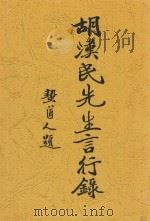 胡漢民先生言行錄
蟄道人題